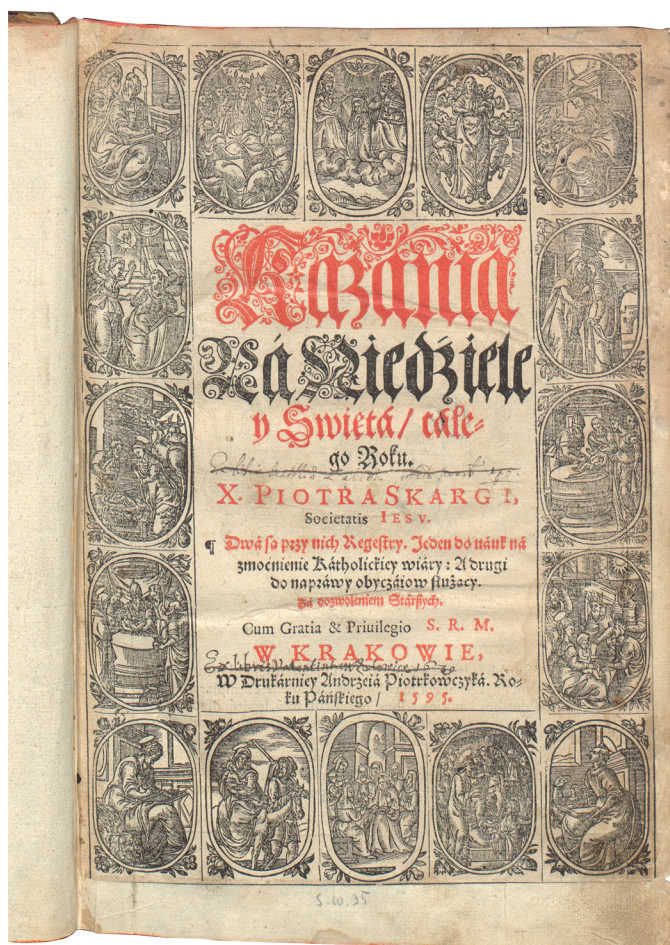 Kazania
Ná Niedźiele
y Swiętá / cáłe-
go Roku.
X. PIOTRA SKARGI,
Societatis IESV.
¶ Dwá są przy nich Regestry. Jeden do náuk ná
zmocnienie Kátholickiey wiáry: A drugi
do nápráwy obyczáiow służący.
Zá dozwoleniem Stárßych.
Cum Gratia & Priuilegio S. R. M.
W KRAKOWIE,
Ex libris
W Drukárniey Andrzeiá Piotrkowczyká. Ro-
ku Páńskiego / 1595.
S.W.35